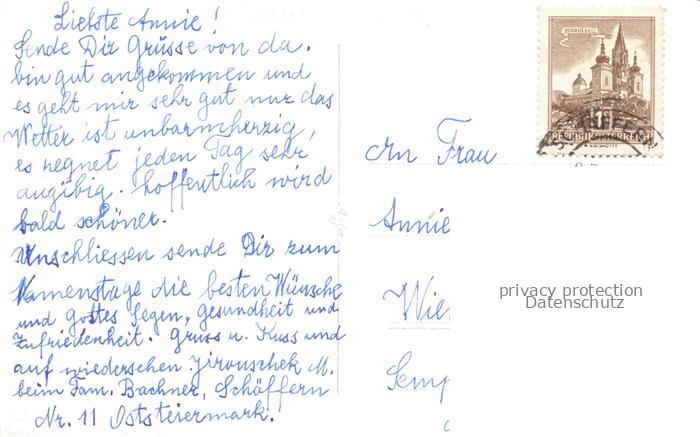 Liebste Annie!
Sende Dir Grüsse von da.
bin gut angekommen und
es geht mir sehr gut nur das
Wetter ist unbarmherzig,
es regnet jeden Tag sehr
augibig. hoffentlich wird
bald schöner.
Anschliessen sende Dir zum
Namenstage die besten Wünsche
und gottes Segen, gesundheit und
Zufriedenheit. Gruss u. Kuss und
auf wiedersehen. Jirouschek M.
beim Fam. Bachner, Schäffern
Nr. 11 Oststeiermark.
MARIAZELL
REPUBLIK ÖSTERREICH
An Frau
Annie
Wie
Semp
privacy protection
Datenschutz